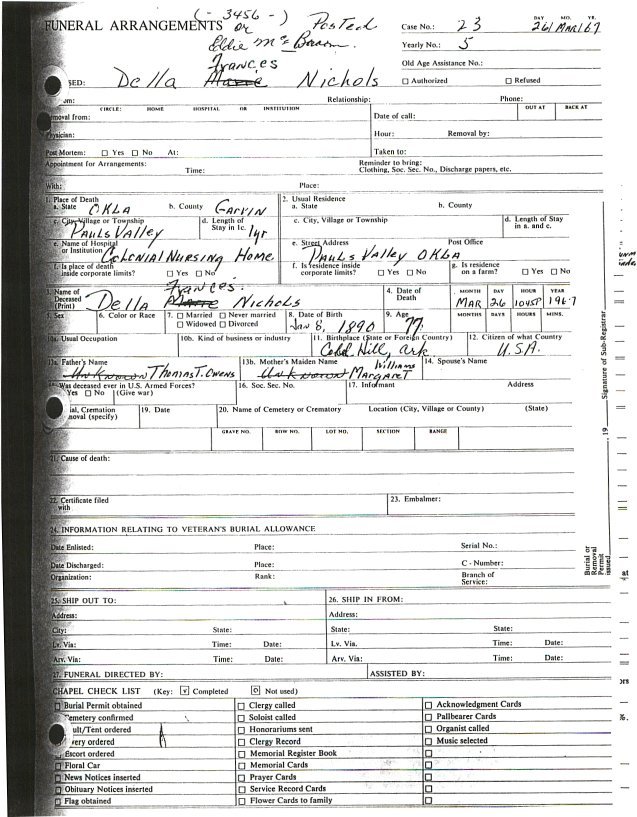 FUNERAL ARRANGEMENTS
(- 3456 -) Posted
or
Case No.: 23
DAY MO. YR.
26 MAR 67
Yearly No.: 5
Frances
Old Age Assistance No.:
SED: Della Marie Nichols
Authorized Refused
om: Relationship: Phone:
CIRCLE: HOME HOSPITAL OR INSTITUTION OUT AT BACK AT
moval from: Date of call:
ysician: Hour: Removal by:
Post Mortem: Yes No At: Taken to:
Appointment for Arrangements: Time: Reminder to bring:
Clothing, Soc. Sec. No., Discharge papers, etc.
With: Place:
1. Place of Death
a. State OKLA b. County Garvin
2. Usual Residence
a. State b. County
c. City, Village or Township Pauls Valley
d. Length of Stay in 1c. 1yr
c. City, Village or Township
d. Length of Stay in a. and c.
e. Name of Hospital or Institution Colonial Nursing Home
e. Street Address Post Office
Pauls Valley Okla
f. Is place of death inside corporate limits? Yes No
f. Is residence inside corporate limits? Yes No
g. Is residence on a farm? Yes No
3. Name of Deceased (Print) Della Marie Nichols
Frances
4. Date of Death
MONTH DAY HOUR YEAR
MAR 26 1045P 1967
5. Sex 6. Color or Race 7. Married Never married
Widowed Divorced
8. Date of Birth Jan 8, 1890
9. Age 77
MONTHS DAYS HOURS MINS.
10a. Usual Occupation 10b. Kind of business or industry
11. Birthplace (State or Foreign Country) Hill, Ark
12. Citizen of what Country U.S.A.
13a. Father's Name
Unknown Thomas T. Owens
13b. Mother's Maiden Name
Unknown Margaret Williams
14. Spouse's Name
15. Was deceased ever in U.S. Armed Forces?
Yes No (Give war)
16. Soc. Sec. No. 17. Informant Address
ial, Cremation
moval (specify)
19. Date 20. Name of Cemetery or Crematory Location (City, Village or County) (State)
GRAVE NO. ROW NO. LOT NO. SECTION RANGE
21. Cause of death:
22. Certificate filed with
23. Embalmer:
24. INFORMATION RELATING TO VETERAN'S BURIAL ALLOWANCE
Date Enlisted: Place: Serial No.:
Date Discharged: Place: C - Number:
Organization: Rank: Branch of Service:
25. SHIP OUT TO: 26. SHIP IN FROM:
Address: Address:
City: State: State: State:
Lv. Via: Time: Date: Lv. Via: Time: Date:
Arv. Via: Time: Date: Arv. Via: Time: Date:
27. FUNERAL DIRECTED BY: ASSISTED BY:
CHAPEL CHECK LIST (Key: Completed Not used)
Burial Permit obtained Clergy called Acknowledgment Cards
Cemetery confirmed Soloist called Pallbearer Cards
ult/Tent ordered Honorariums sent Organist called
very ordered Clergy Record Music selected
Escort ordered Memorial Register Book
Floral Car Memorial Cards
News Notices inserted Prayer Cards
Obituary Notices inserted Service Record Cards
Flag obtained Flower Cards to family
Signature of Sub-Registrar
, 19
Burial or Removal Permit issued